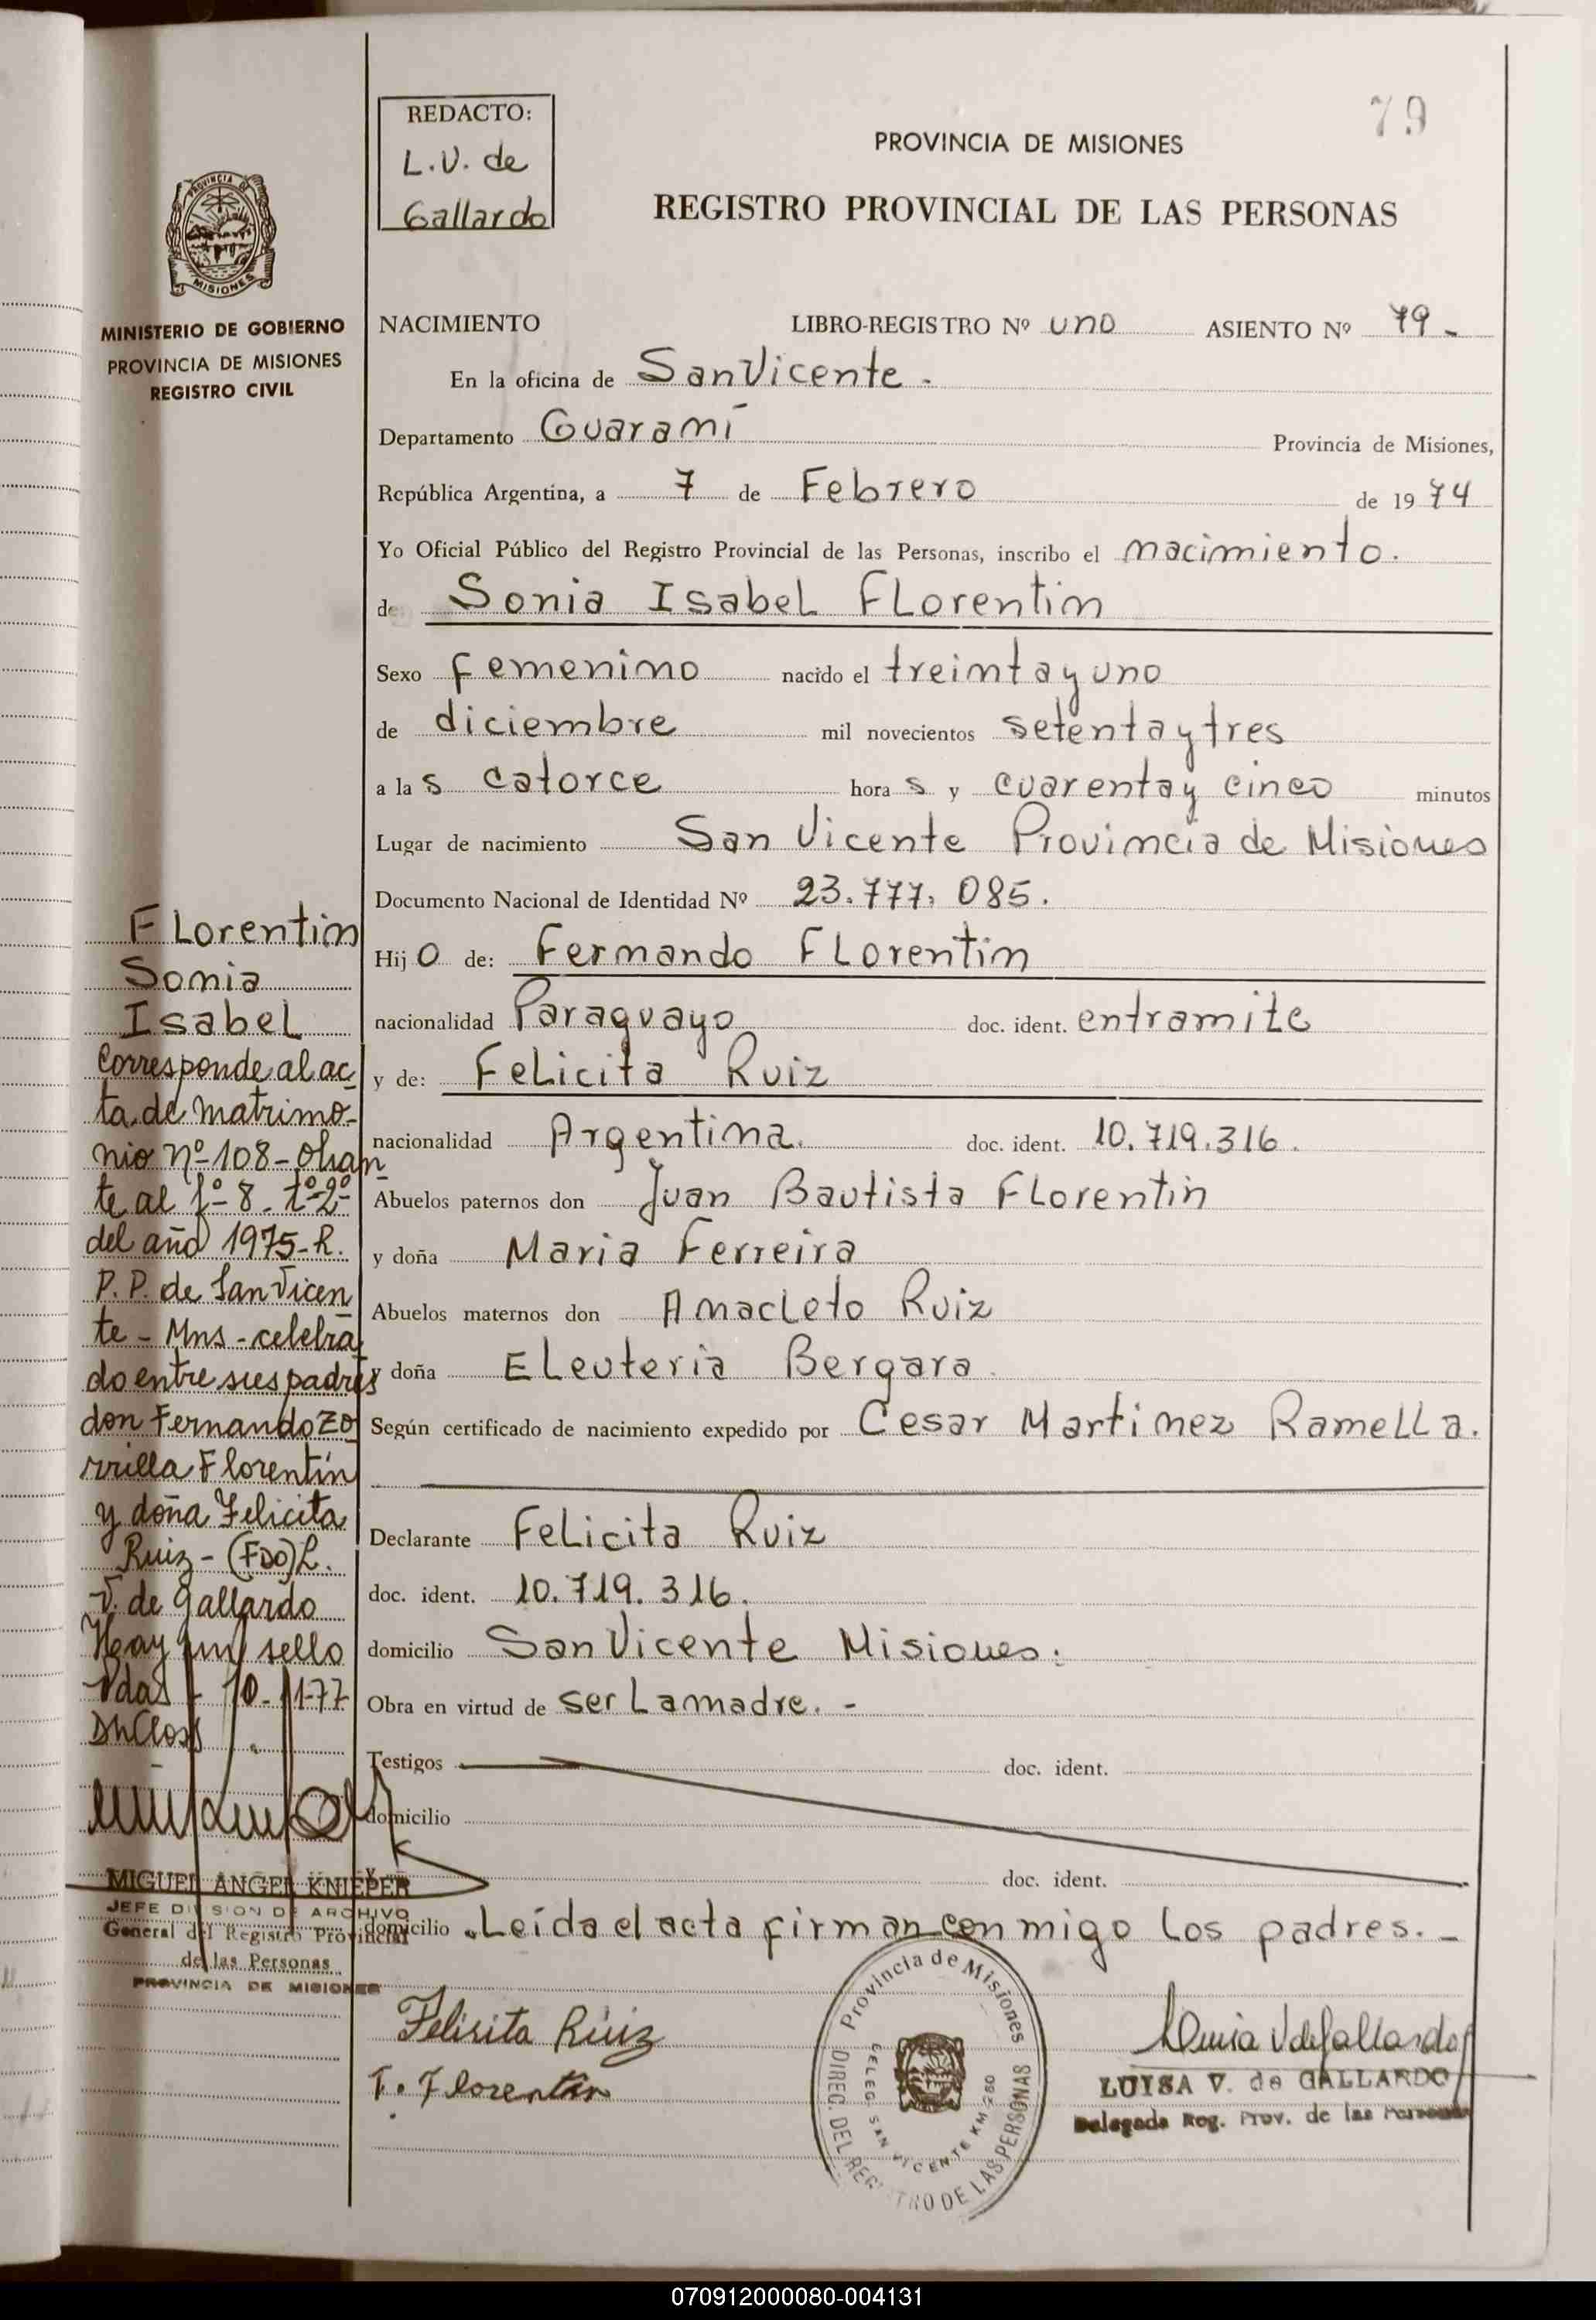 79
REDACTO:
L.V. de
Gallardo
PROVINCIA DE MISIONES
REGISTRO PROVINCIAL DE LAS PERSONAS
PROVINCIA DE
MISIONES
MINISTERIO DE GOBIERNO
PROVINCIA DE MISIONES
REGISTRO CIVIL
NACIMIENTO LIBRO-REGISTRO Nº uno ASIENTO Nº 79-
En la oficina de San Vicente.
Departamento Guaraní Provincia de Misiones,
República Argentina, a 7 de Febrero de 1974
Yo Oficial Público del Registro Provincial de las Personas, inscribo el nacimiento.
de Sonia Isabel Florentin
Sexo femenino nacido el treinta y uno
de diciembre mil novecientos setenta y tres
a las catorce horas y cuarenta y cinco minutos
Lugar de nacimiento San Vicente Provincia de Misiones
Documento Nacional de Identidad Nº 23.777.085.
Hijo de: Fernando Florentin
nacionalidad Paraguayo doc. ident. entramite
y de: Felicita Ruiz
nacionalidad Argentina. doc. ident. 10.719.316.
Abuelos paternos don Juan Bautista Florentin
y doña Maria Ferreira
Abuelos maternos don Anacleto Ruiz
y doña Eleuteria Bergara.
Según certificado de nacimiento expedido por Cesar Martinez Ramella.
Declarante Felicita Ruiz
doc. ident. 10.719.316.
domicilio San Vicente Misiones.
Obra en virtud de ser la madre.-
Testigos doc. ident.
domicilio
y doc. ident.
domicilio Leída el acta firman conmigo los padres.-
Florentin
Sonia
Isabel
Corresponde al ac
ta de matrimo-
nio nº 108-obran
te al fº 8-tº 2º
del año 1975-R.
P.P. de San Vicen
te-Mns-celebra
do entre sus padres
don Fernando Zo
rrilla Florentín
y doña Felicita
Ruiz-(FDO)L.
V. de Gallardo
Hay un sello
Pdas- 10-11-77
MIGUEL ANGEL KNIEPER
JEFE DIVISION DE ARCHIVO
General del Registro Provincial
de las Personas
PROVINCIA DE MISIONES
Felisita Ruiz
T. Florentin
Provincia de Misiones
DIREC. DEL REGISTRO DE LAS PERSONAS
DELEG. SAN VICENTE KM 280
Luisa V de Gallardo
LUISA V. de GALLARDO
Delegada Reg. Prov. de las Personas
070912000080-004131